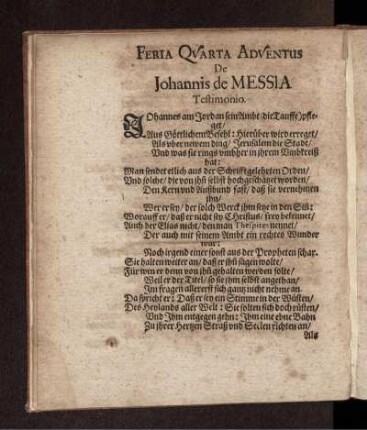 FERIA QVARTA ADVENTUS
De
Johannis de MESSIA
Testimonio.
JOhannes am Jordan sein Ambt (die Tauffe) pfle-
get/
Aus Göttlichem Befehl: Hierüber wird erreget/
Als vber newem ding/ Jerusalem die Stadt/
Vnd was sie rings vmbher in jhrem Vmbkreiß
hat:
Man sendet etlich aus der Schrifftgelehrten Orden/
Vnd solche/ die von jhn selbst hochgeschätzt worden/
Den Kern vnd Außbund fast/ daß sie vernehmen
jhn/
Wer er sey/ der solch Werck jhm söge in den Siñ:
Worauff er/ daß er nicht sey Christus/ frey bekennet/
Auch der Elias nicht/ den man Thesbiten nennet/
Der auch mit seinem Ambt ein rechtes Wunder
war:
Noch irgend einer sonst aus der Propheten schar.
Sie halten weiter an/ daß er jhn sagen wolte/
Für wem er denn von jhn gehalten werden solte/
Weil er der Titel/ so sie jhm selbst angethan/
Im fragen allererst sich gantz nicht nehme an.
Da spricht er: Daß er sey ein Stimme in der Wüsten/
Des Heylands aller Welt: Sie solten sich doch rüsten/
Vnd Ihm entgegen gehn: Ihm eine ebne Bahn
Zu jhrer Hertzen Straß vnd Stelen richten an/
Als